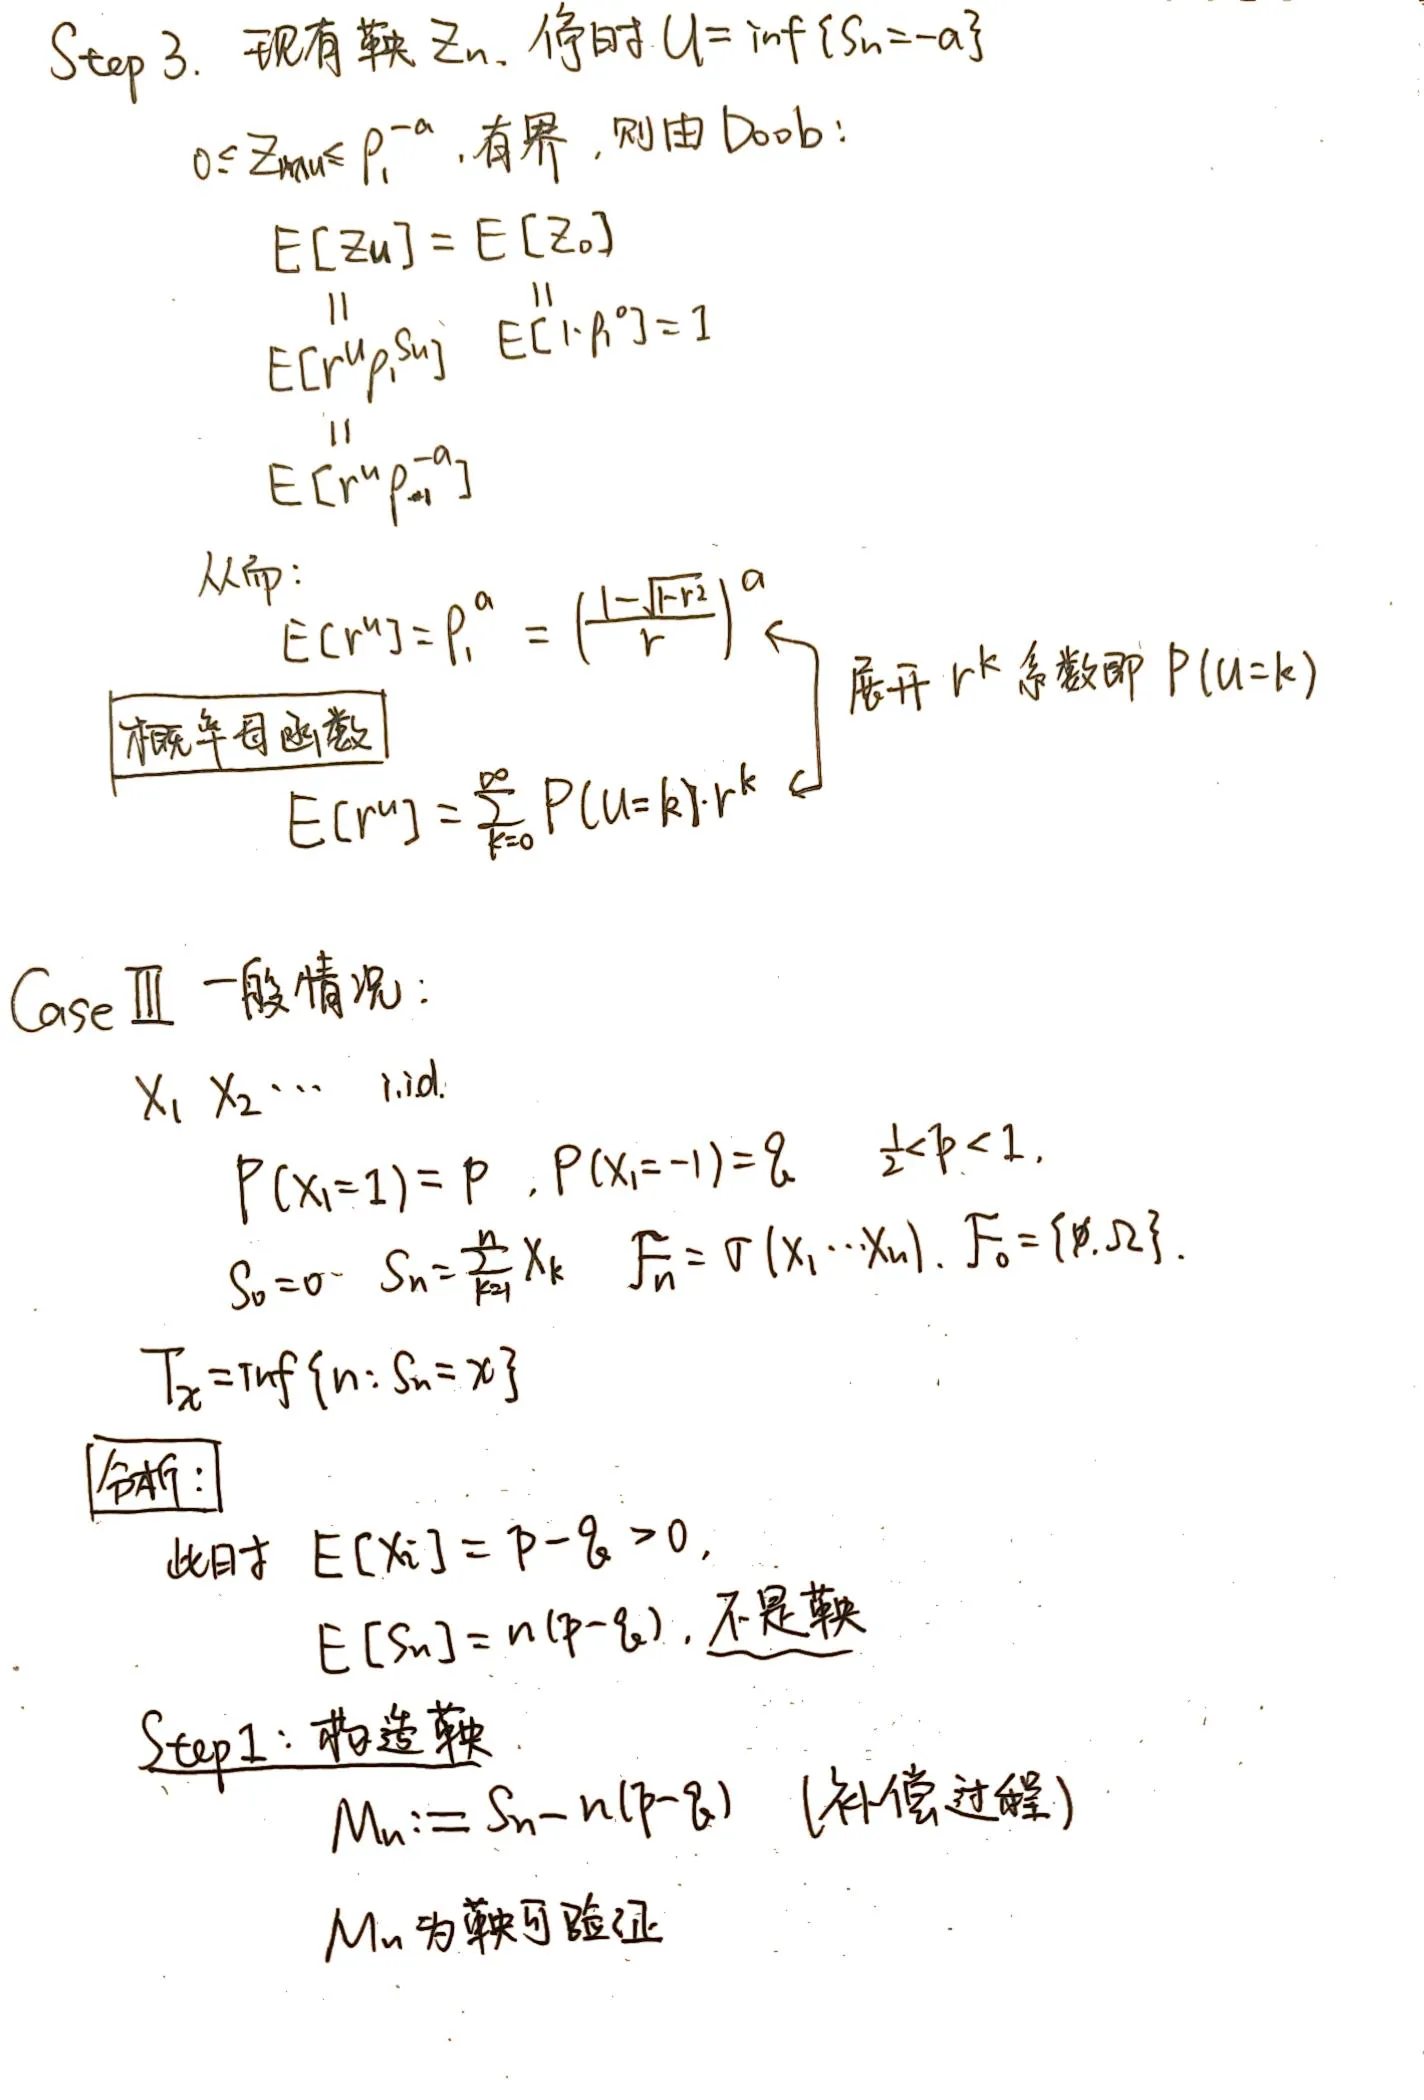 Step 3. 现有鞅 Zn. 停时 U = inf{Sn=-a}
0 ≤ Zn∧u ≤ ρ₁^{-a}, 有界, 则由 Doob:
E[Zu] = E[Z₀]
॥ ॥
E[r^u ρ₁^{Su}] E[1·ρ₁^0] = 1
॥
E[r^u ρ₁^{-a}]
从而:
E[r^u] = ρ₁^a = ((1-√(1-r²))/r)^a
展开 r^k 系数即 P(u=k)
概率母函数
E[r^u] = ∑_{k=0}^{∞} P(u=k)·r^k
Case Ⅲ 一般情况:
X₁ X₂ ⋯ i.i.d.
P(X₁=1) = p, P(X₁=-1) = q ½<p<1.
S₀=0 Sn = ∑_{k=1}^{n} Xk Fn = σ(X₁⋯Xn). F₀ = {∅.Ω}.
Tx = inf{n: Sn = x}
分析:
此时 E[Xi] = p-q >0,
E[Sn] = n(p-q), 不是鞅
Step1: 构造鞅
Mn := Sn - n(p-q) (补偿过程)
Mn 为鞅可验证